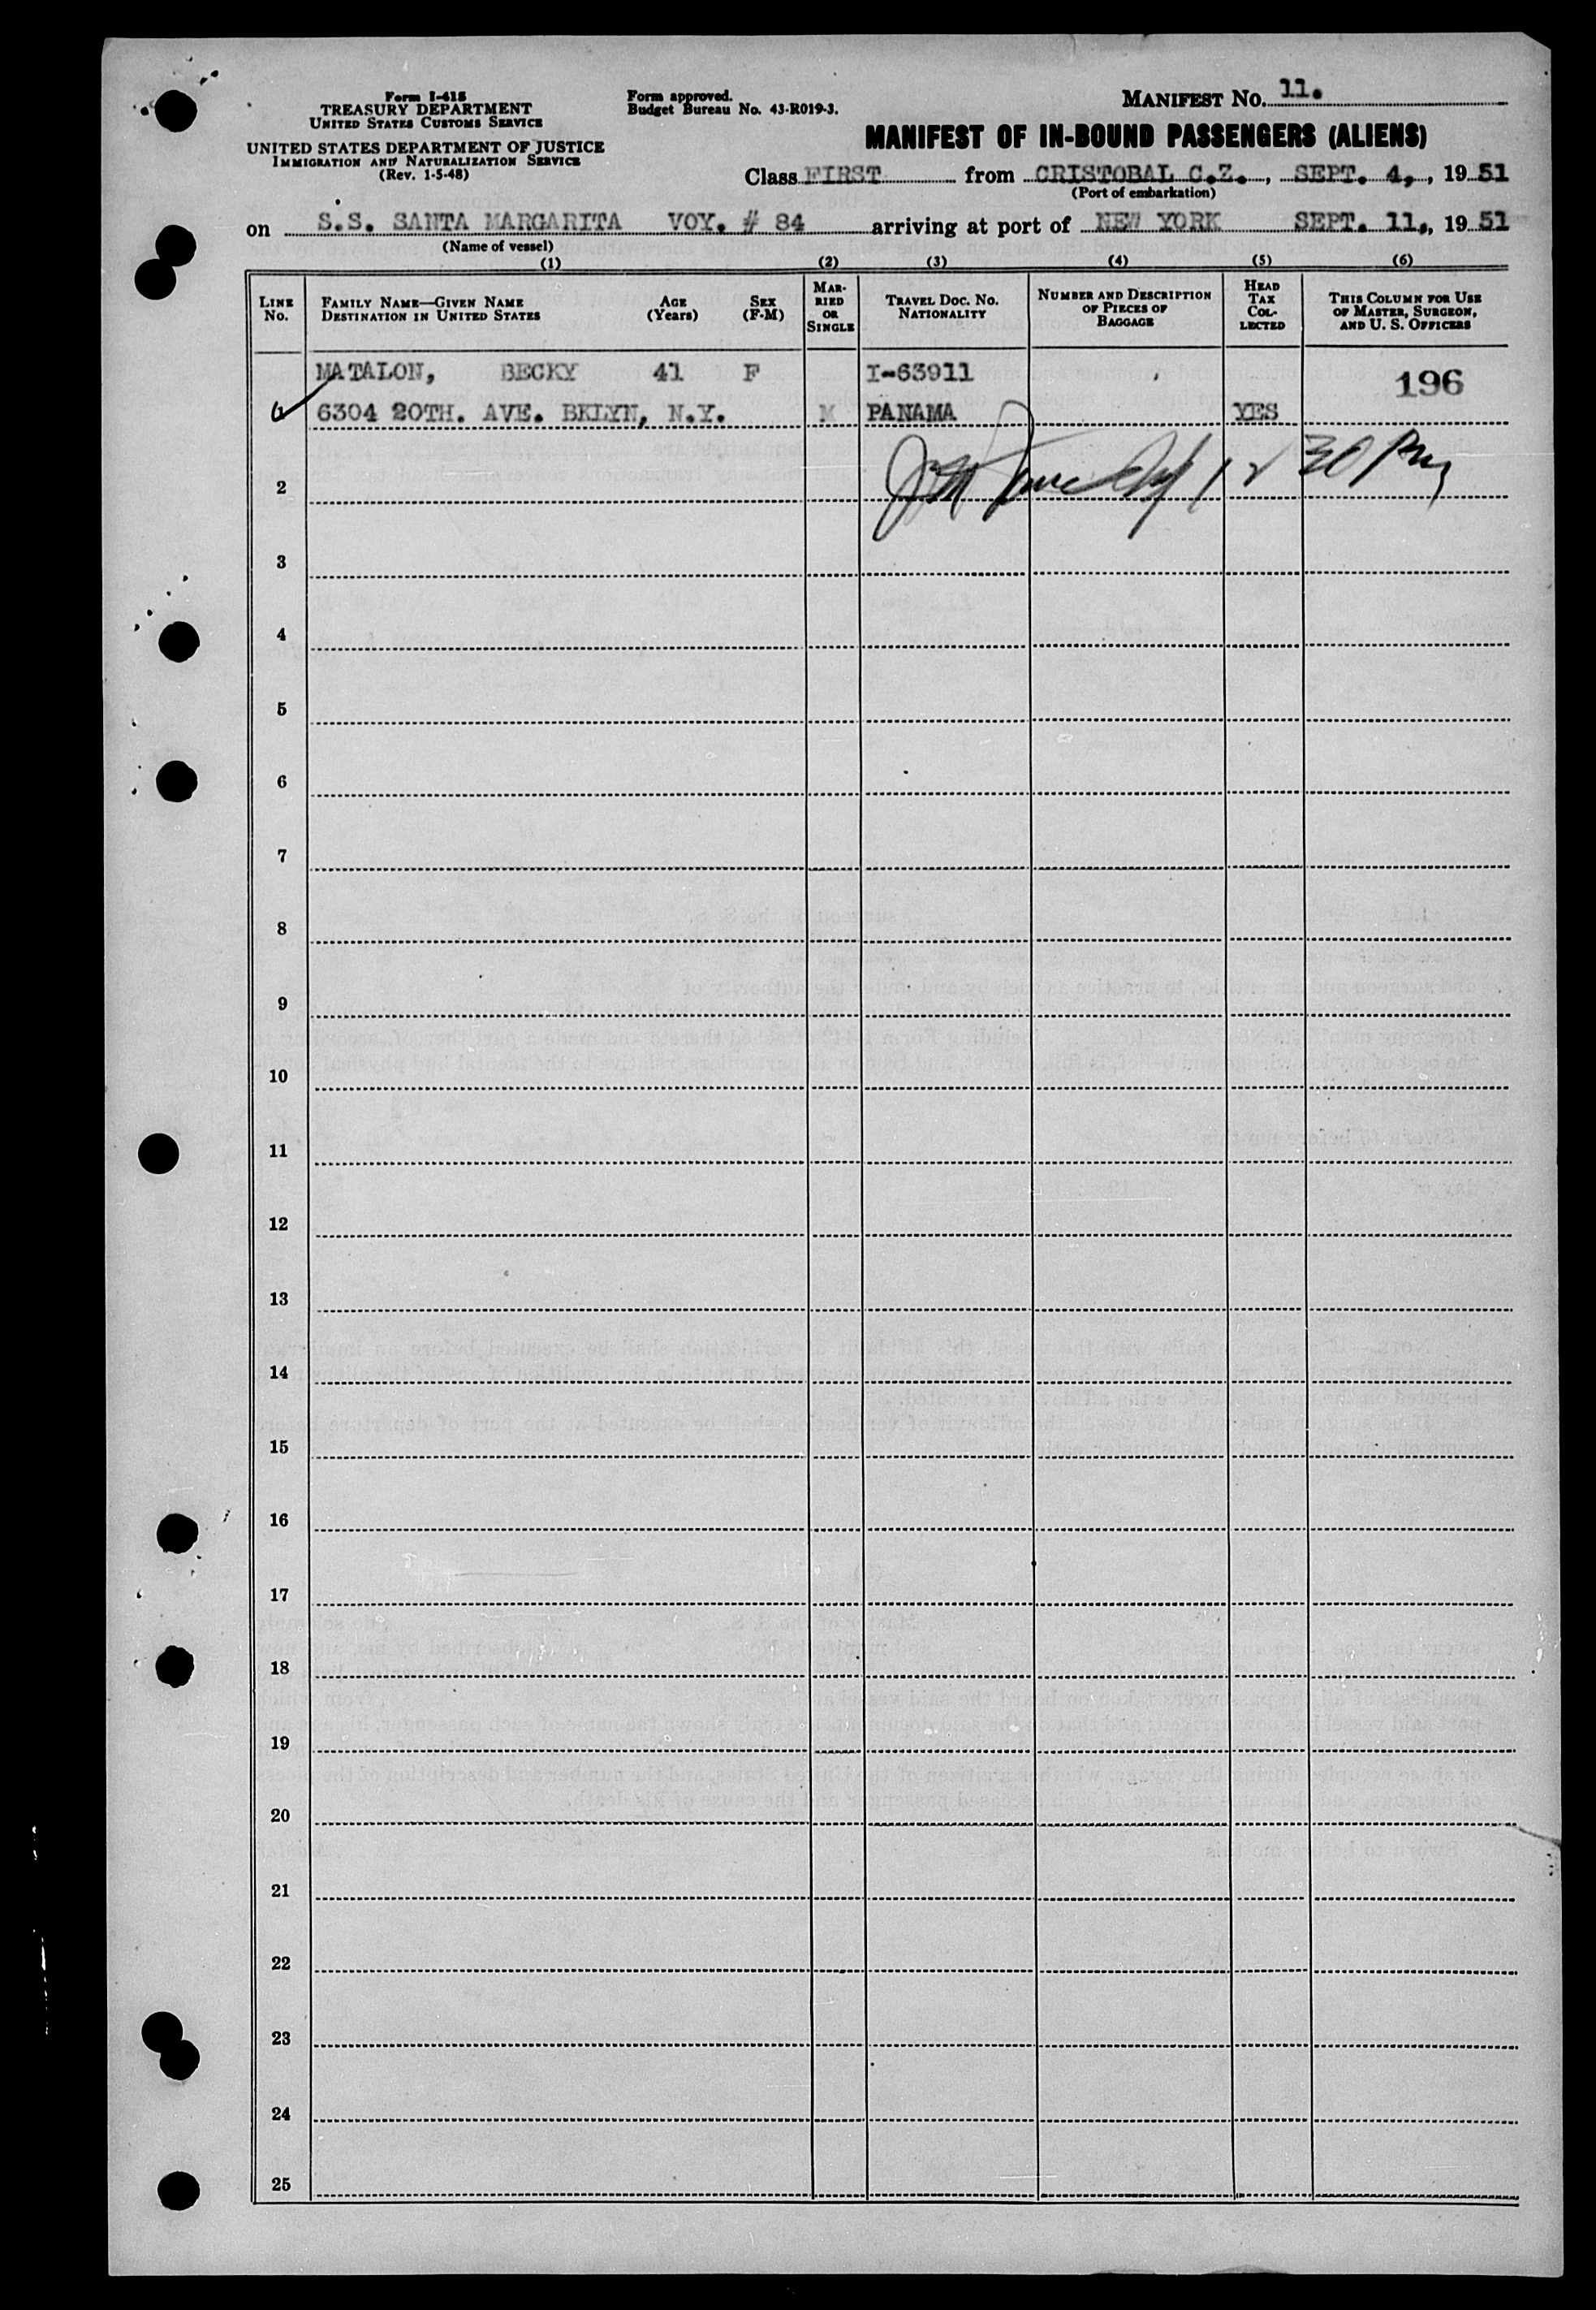 Form I-415
TREASURY DEPARTMENT
UNITED STATES CUSTOMS SERVICE
UNITED STATES DEPARTMENT OF JUSTICE
IMMIGRATION AND NATURALIZATION SERVICE
(Rev. 1-5-48)
Form approved.
Budget Bureau No. 43-R019-3.
MANIFEST NO. 11.
MANIFEST OF IN-BOUND PASSENGERS (ALIENS)
Class FIRST from CRISTOBAL C.Z., SEPT. 4, 1951
(Port of embarkation)
on S.S. SANTA MARGARITA VOY. # 84 arriving at port of NEW YORK SEPT. 11, 1951
(Name of vessel)
(1) (2) (3) (4) (5) (6)
LINE NO.
FAMILY NAME—GIVEN NAME
DESTINATION IN UNITED STATES
AGE
(Years)
SEX
(F-M)
MAR-
RIED
OR
SINGLE
TRAVEL DOC. NO.
NATIONALITY
NUMBER AND DESCRIPTION
OF PIECES OF
BAGGAGE
HEAD
TAX
COL-
LECTED
THIS COLUMN FOR USE
OF MASTER, SURGEON,
AND U. S. OFFICERS
MATALON, BECKY 41 F I-63911 196
6304 20TH. AVE. BKLYN, N.Y. M PANAMA YES
2 30 Pm
3
4
5
6
7
8
9
10
11
12
13
14
15
16
17
18
19
20
21
22
23
24
25